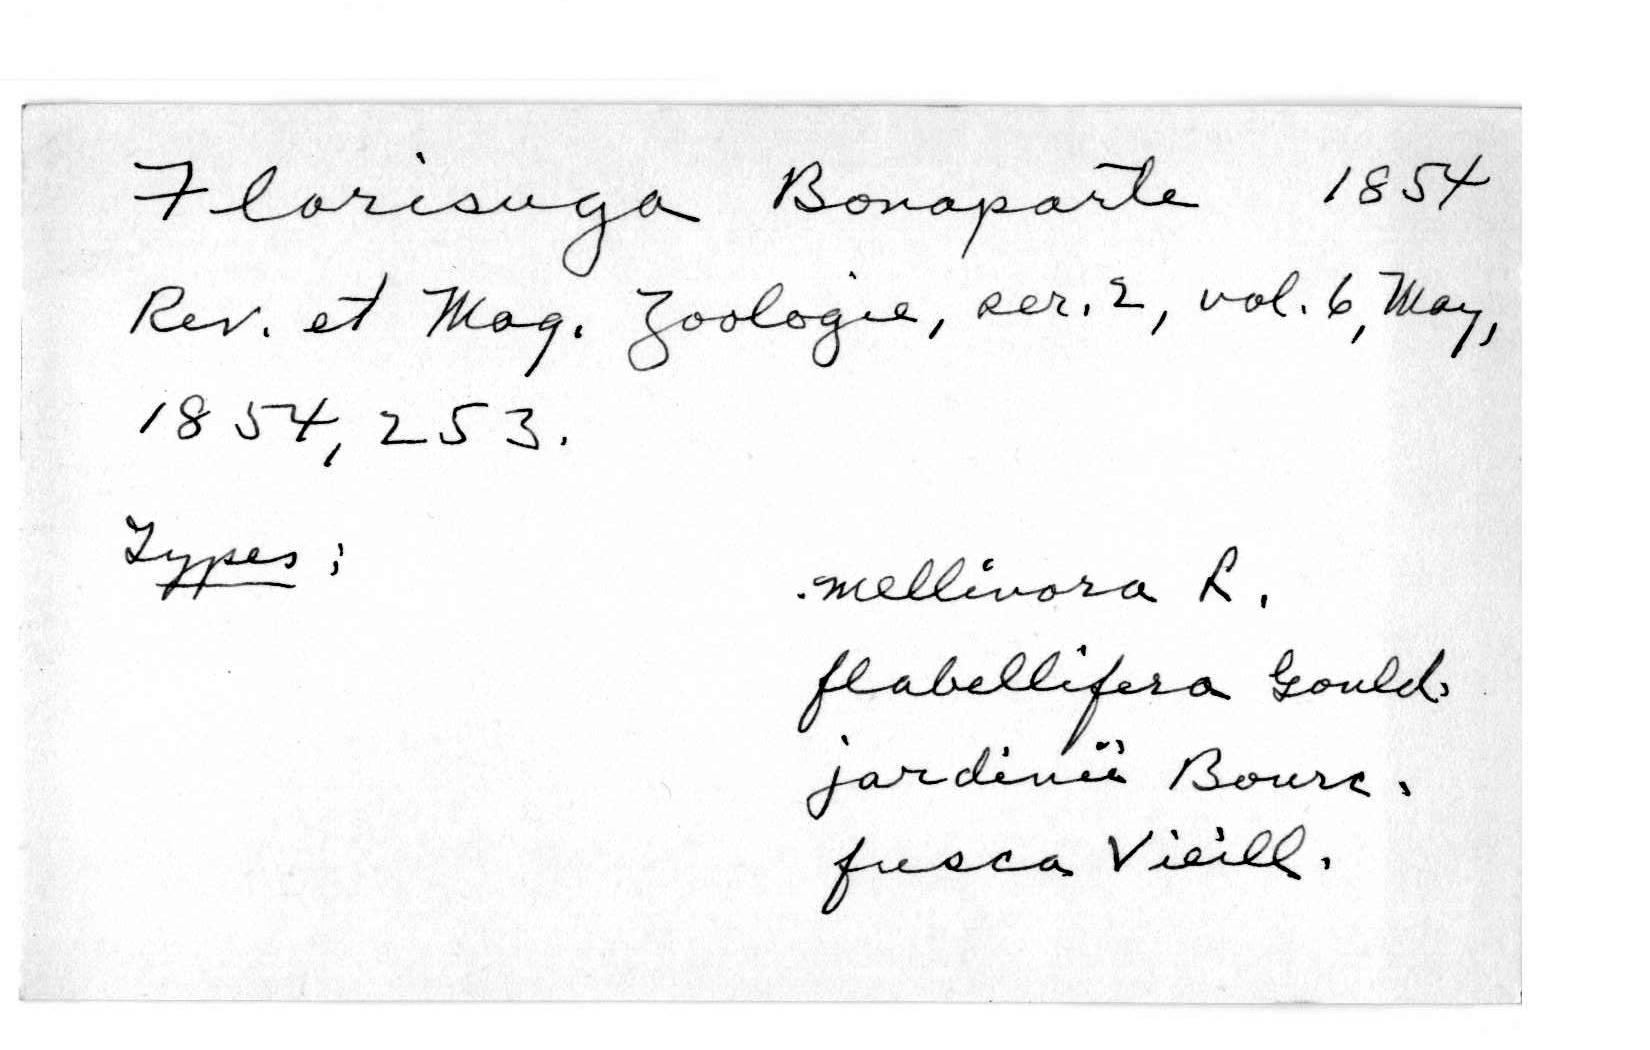 Florisuga Bonaparte 1854
Rev. et Mag. Zoologie, ser. 2, vol. 6, May,
1854, 253.
Types:
mellivora L.
flabellifera Gould.
jardinii Bourc.
fusca Vieill.